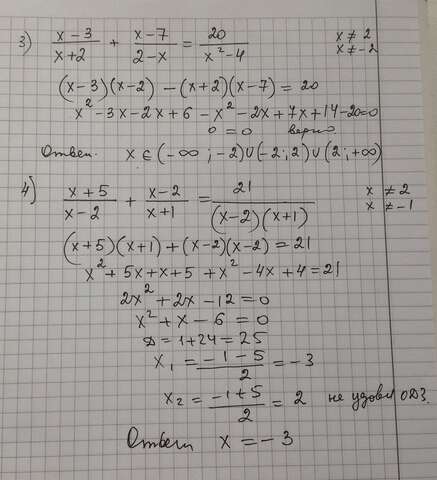 3) \frac{x-3}{x+2} + \frac{x-7}{2-x} = \frac{20}{x^2-4} x ≠ 2 x ≠ -2
(x-3)(x-2) - (x+2)(x-7) = 20
x^2 - 3x - 2x + 6 - x^2 - 2x + 7x + 14 - 20 = 0
0 = 0 верно
Ответ. x ∈ (-∞; -2) ∪ (-2; 2) ∪ (2; +∞)
4) \frac{x+5}{x-2} + \frac{x-2}{x+1} = \frac{21}{(x-2)(x+1)} x ≠ 2 x ≠ -1
(x+5)(x+1) + (x-2)(x-2) = 21
x^2 + 5x + x + 5 + x^2 - 4x + 4 = 21
2x^2 + 2x - 12 = 0
x^2 + x - 6 = 0
D = 1 + 24 = 25
x_1 = \frac{-1-5}{2} = -3
x_2 = \frac{-1+5}{2} = 2 не удовл ОДЗ.
Ответ x = -3